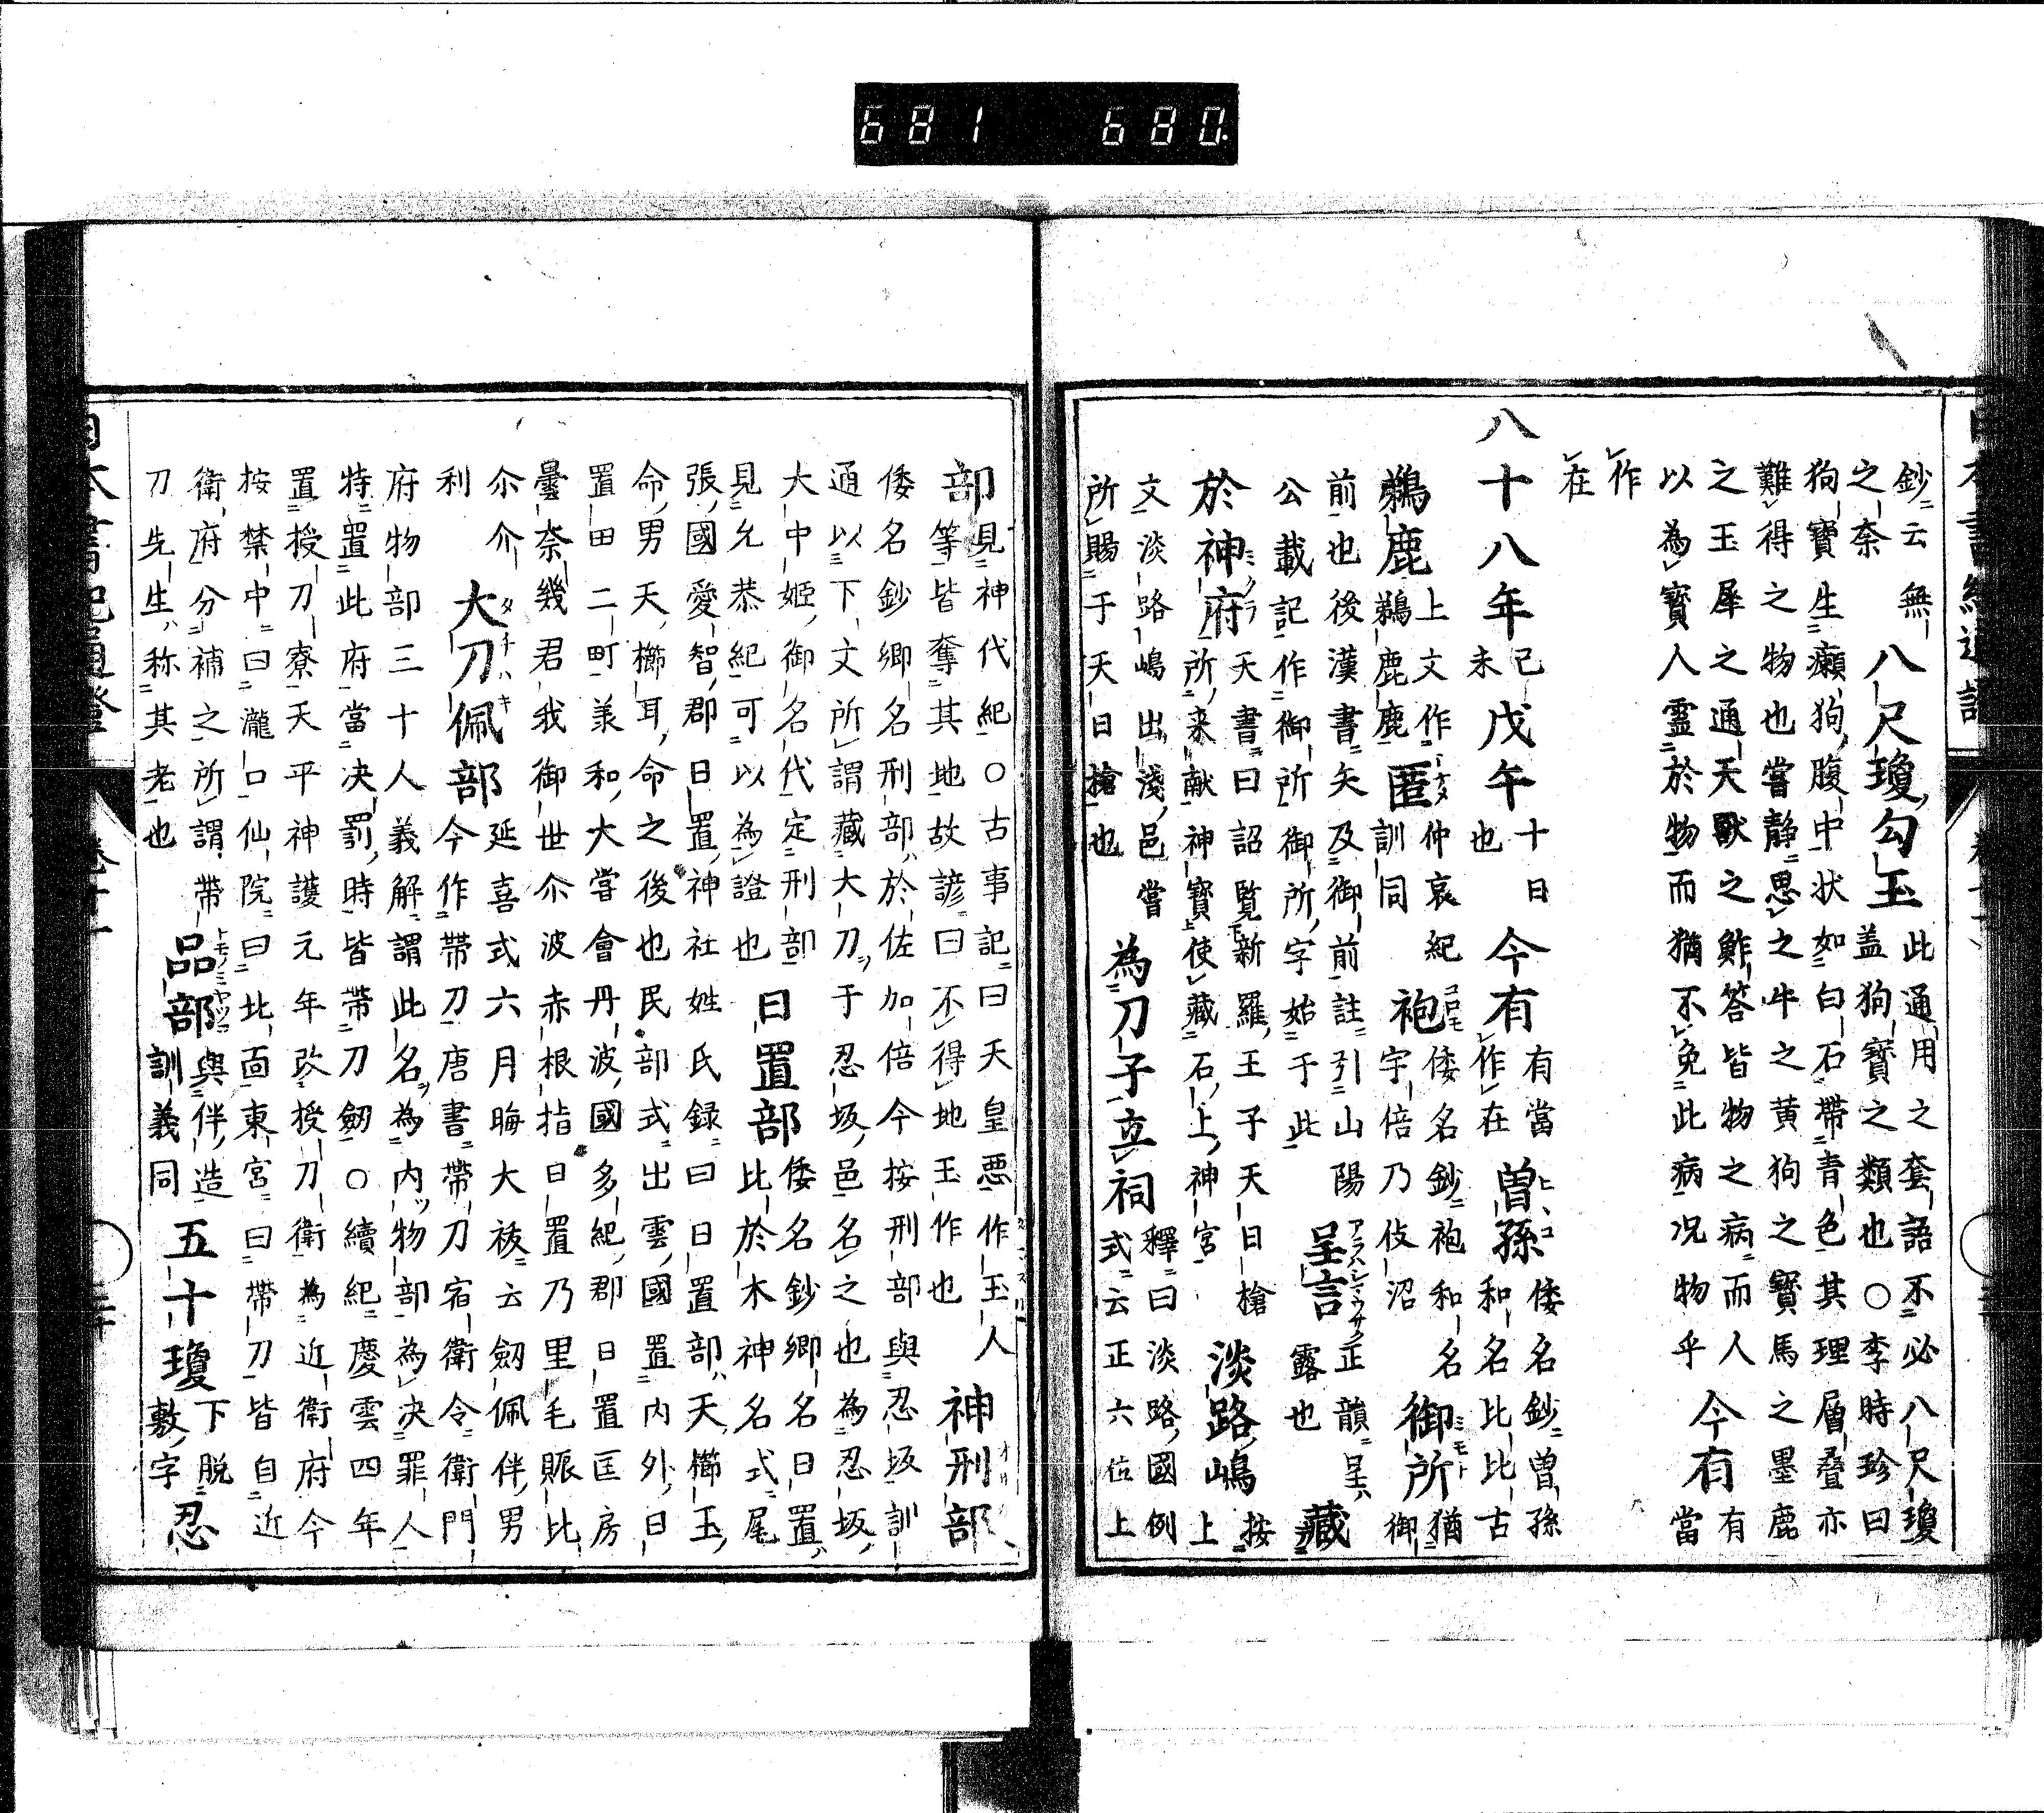 681 680
鈔云無
之奈
八尺瓊勾玉
此通用之套語不必八尺瓊
蓋狗寶之類也○李時珍曰
狗寶生癩狗腹中状如白石帶青色其理層疊亦
難得之物也嘗静思之牛之黄狗之寶馬之墨鹿
之玉犀之通天獸之鮓荅皆物之病而人
以為寶人靈於物而猶不免此病况物乎
今有
有當
作
在
八十八年
己未
戊午
十日也
今有
有當作在
曽孫
ヒヽコ
倭名鈔曽孫
和名比比古
鵜鹿鹿
上文作
鵜鹿鹿
匿
仲哀紀
訓同
袍
コロモ
倭名鈔袍和名
字倍乃伎沼
御所
ミモト
猶御
前也後漢書矢及御前註引山陽
公載記作御所御所字始于此
呈言
正韻呈
露也
藏
於神府
ミクラ
天書曰詔覧新羅王子天日槍
所来献神寶使藏石上神宮
淡路嶋
按上
文淡路嶋出淺邑嘗
所賜于天日槍也
為刀子立祠
釋曰淡路國例
式云正六位上
部
見神代紀○古事記曰天皇惡作玉人
等皆奪其地故諺曰不得地玉作也
神刑部
倭名鈔郷名刑部於佐加倍今按刑部與忍坂訓
通以下文所謂藏大刀于忍坂邑名之也為忍坂
大中姬御名代定刑部
見允恭紀可以為證也
日置部
倭名鈔郷名日置
比於木神名式尾
張國愛智郡日置神社姓氏録曰日置部天櫛玉
命男天櫛耳命之後也民部式出雲國置内外日
置田二町羕和大嘗會丹波國多紀郡日置匡房
曇奈幾君我御世尒波赤根指日置乃里毛賑比
尒介利
大刀佩部
タチハキ
延喜式六月晦大祓云劒佩伴男
今作帶刀唐書帶刀宿衛令衛門
府物部三十人義解謂此名為内物部為决罪人
特置此府當决罰時皆帶刀劒○續紀慶雲四年
置授刀寮天平神護元年改授刀衛為近衛府今
按禁中曰瀧口仙院曰北面東宮曰帶刀皆自近
衛府分補之所謂帶
刀先生称其老也
品部
與伴造
訓義同
五十瓊
下脱
敷字
忍